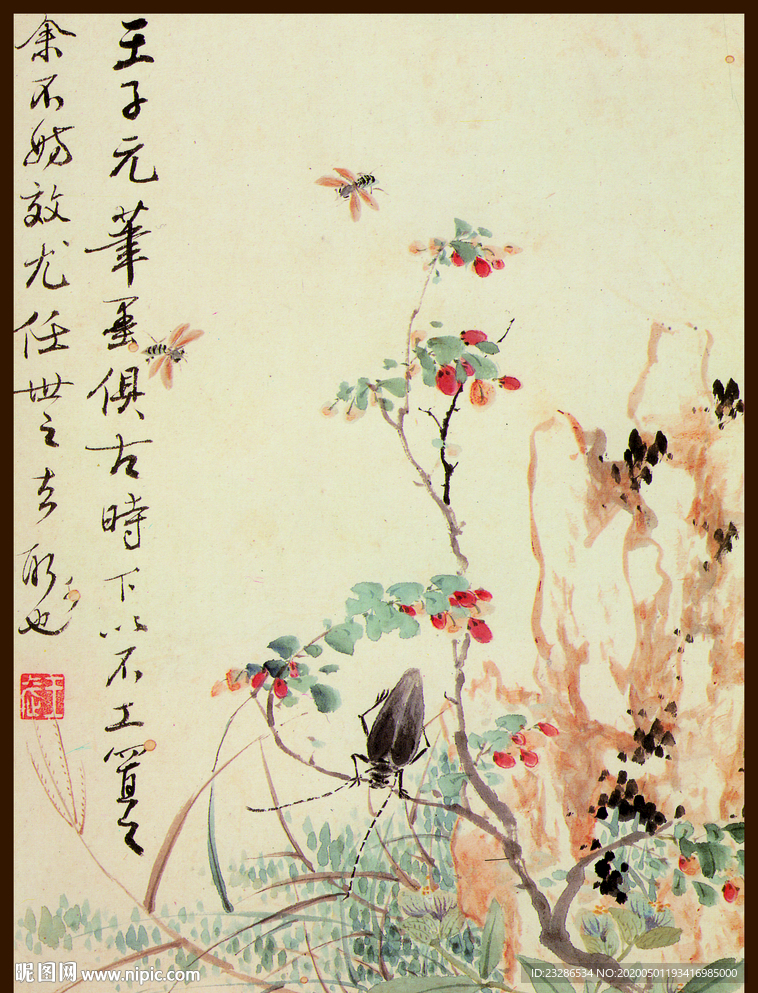 王子元筆墨俱古時下以不工置之
余不妨效尤任世之去取也
昵图网 www.nipic.com
ID:23286534 NO:20200501193416985000